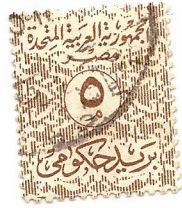 الجمهورية العربية المتحدة
مصر
٥
بريد حكومى